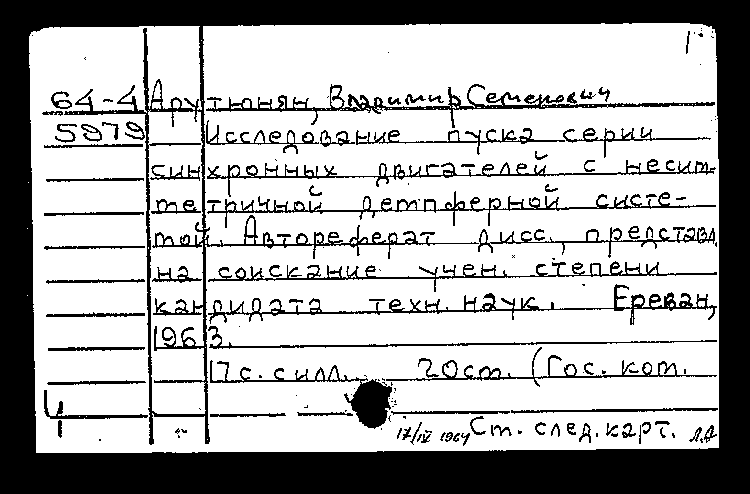 64-4 Арутюнян, Владимир Семенович
5979 Исследование пуска серии
синхронных двигателей с несим-
метричной демпферной систе-
мой. Автореферат дисс., представл.
на соискание учен. степени
кандидата техн. наук. Ереван,
1963.
17 с. с илл. 20 см. (Гос. ком.
4
17/IV 1964 Ст. след. карт. Л.А